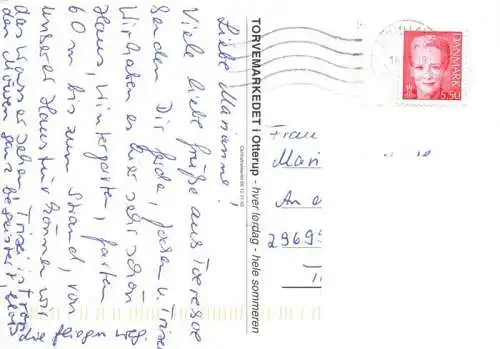 Liebe Marianne!
Viele liebe Grüße aus Tørresø
senden Dir Frida, Jochen u. Trixi
Wir haben es hier sehr schön
Haus, Wintergarten, Garten
60 m bis zum Strand, von
unserer Haustür können wir
das Wasser sehen. Trixi ist von
den Möwen ganz begeistert, bloß
die fliegen weg.
TORVEMARKEDET i Otterup - hver lørdag - hele sommeren
DANMARK
5.50
Frau
Mari
An d
29699